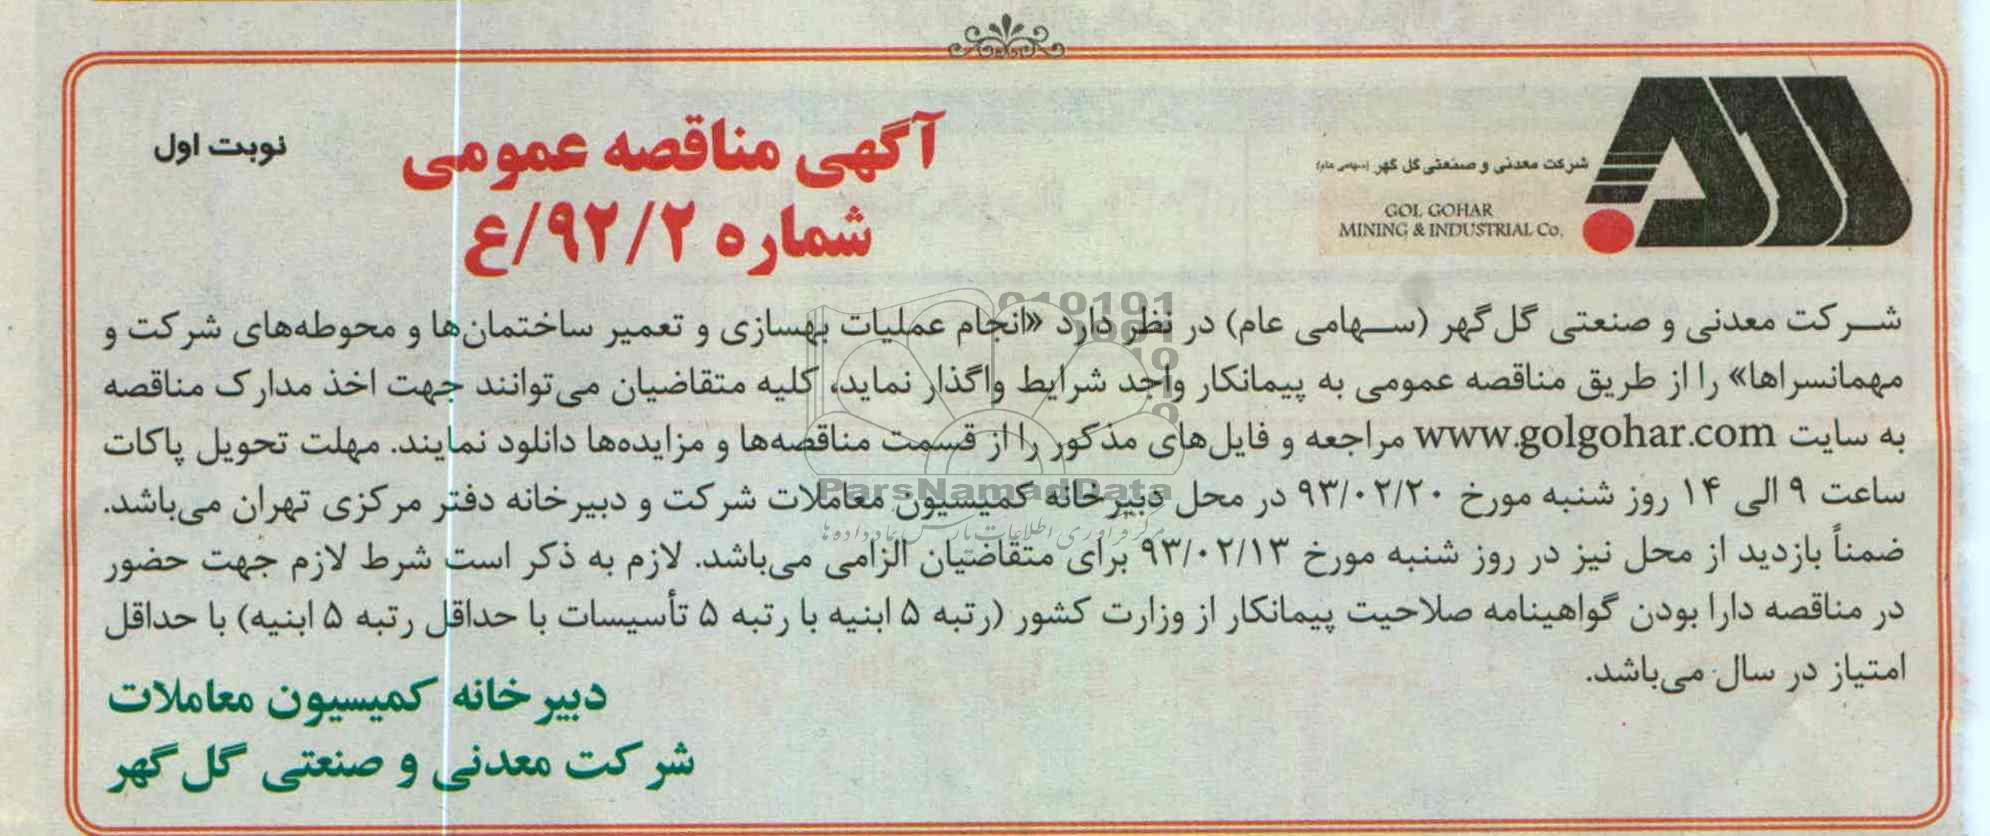 شرکت معدنی و صنعتی گل گهر (سهامی عام)
GOL GOHAR
MINING & INDUSTRIAL Co.
نوبت اول
آگهی مناقصه عمومی
شماره ۹۲/۲/ع
شرکت معدنی و صنعتی گل‌گهر (سهامی عام) در نظر دارد «انجام عملیات بهسازی و تعمیر ساختمان‌ها و محوطه‌های شرکت و
مهمانسراها» را از طریق مناقصه عمومی به پیمانکار واجد شرایط واگذار نماید، کلیه متقاضیان می‌توانند جهت اخذ مدارک مناقصه
به سایت www.golgohar.com مراجعه و فایل‌های مذکور را از قسمت مناقصه‌ها و مزایده‌ها دانلود نمایند. مهلت تحویل پاکات
ساعت ۹ الی ۱۴ روز شنبه مورخ ۹۳/۰۲/۲۰ در محل دبیرخانه کمیسیون معاملات شرکت و دبیرخانه دفتر مرکزی تهران می‌باشد.
ضمناً بازدید از محل نیز در روز شنبه مورخ ۹۳/۰۲/۱۳ برای متقاضیان الزامی می‌باشد. لازم به ذکر است شرط لازم جهت حضور
در مناقصه دارا بودن گواهینامه صلاحیت پیمانکار از وزارت کشور (رتبه ۵ ابنیه با رتبه ۵ تأسیسات با حداقل رتبه ۵ ابنیه) با حداقل
امتیاز در سال می‌باشد.
دبیرخانه کمیسیون معاملات
شرکت معدنی و صنعتی گل‌گهر
ParsNamadData